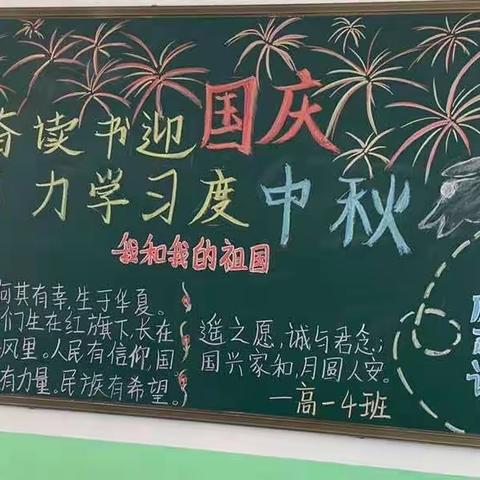 奋读书迎国庆
力学习度中秋
我和我的祖国
何其有幸,生于华夏。
们生在红旗下,长在
风里。人民有信仰,国
有力量。民族有希望。
遥之愿,诚与君念;
国兴家和,月圆人安。
—高一4班